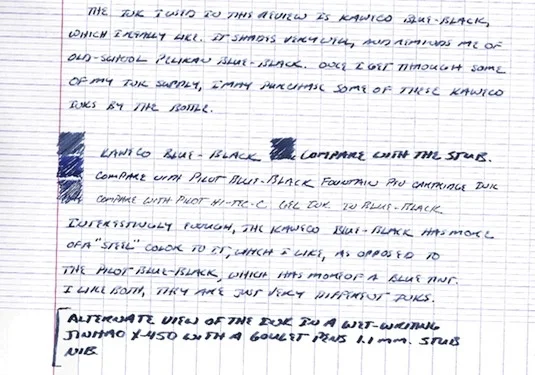 THE INK I USED IN THIS REVIEW IS KAWECO BLUE-BLACK,
WHICH I REALLY LIKE. IT SHADES VERY WELL, AND REMINDS ME OF
OLD-SCHOOL PELIKAN BLUE-BLACK. ONCE I GET THROUGH SOME
OF MY INK SUPPLY, I MAY PURCHASE SOME OF THESE KAWECO
INKS BY THE BOTTLE.
KAWECO BLUE-BLACK COMPARE WITH THE STUB.
COMPARE WITH PILOT BLUE-BLACK FOUNTAIN PEN CARTRIDGE INK
COMPARE WITH PILOT HI-TEC-C GEL INK IN BLUE-BLACK
INTERESTINGLY ENOUGH, THE KAWECO BLUE-BLACK HAS MORE
OF A "STEEL" COLOR TO IT, WHICH I LIKE, AS OPPOSED TO
THE PILOT BLUE-BLACK, WHICH HAS MORE OF A BLUE TINT.
I LIKE BOTH, THEY ARE JUST VERY DIFFERENT INKS.
ALTERNATE VIEW OF THE INK IN A WET-WRITING
JINHAO X-450 WITH A GOULET PENS 1.1 MM. STUB
NIB.